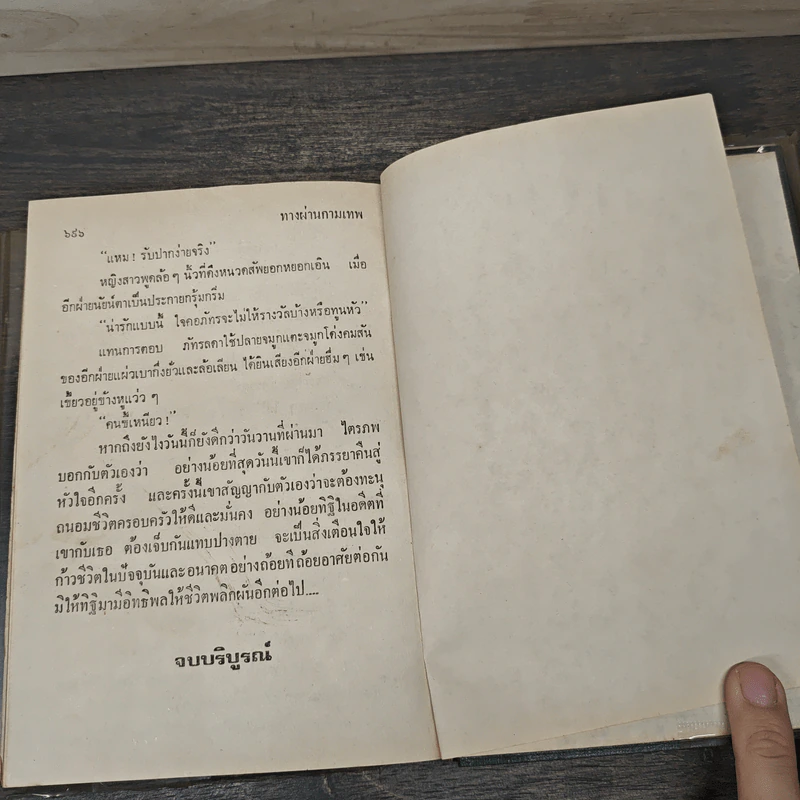 ๖๙๖
ทางผ่านกามเทพ
“แหม ! รับปากง่ายจริง”
หญิงสาวพูดล้อ ๆ นิ้วที่ดึงหนวดสัพยอกหยอกเอิน เมื่อ
อีกฝ่ายนัยน์ตาเป็นประกายกรุ้มกริ่ม
“น่ารักแบบนี้ ใจคอภัทรจะไม่ให้รางวัลบ้างหรือทูนหัว”
แทนการตอบ ภัทรลดาใช้ปลายจมูกแตะจมูกโด่งคมสัน
ของอีกฝ่ายแผ่วเบากึ่งยั่วและล้อเลียน ได้ยินเสียงอีกฝ่ายฮึ่ม ๆ เข่น
เขี้ยวอยู่ข้างหูแว่ว ๆ
“คนขี้เหนียว !”
หากถึงยังไงวันนี้ก็ยังดีกว่าวันวานที่ผ่านมา ไตรภพ
บอกกับตัวเองว่า อย่างน้อยที่สุดวันนี้เขาก็ได้ภรรยาคืนสู่
หัวใจอีกครั้ง และครั้งนี้เขาสัญญากับตัวเองว่าจะต้องทะนุ
ถนอมชีวิตครอบครัวให้ดีและมั่นคง อย่างน้อยทิฐิในอดีตที่
เขากับเธอ ต้องเจ็บกันแทบปางตาย จะเป็นสิ่งเตือนใจให้
ก้าวชีวิตในปัจจุบันและอนาคตอย่างถ้อยทีถ้อยอาศัยต่อกัน
มิให้ทิฐิมามีอิทธิพลให้ชีวิตพลิกผันอีกต่อไป....
จบบริบูรณ์